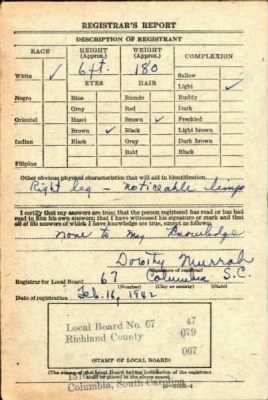 REGISTRAR'S REPORT
DESCRIPTION OF REGISTRANT
RACE HEIGHT (Approx.) WEIGHT (Approx.) COMPLEXION
6 ft. 180
Sallow
White ✓ EYES HAIR Light ✓
Negro Blue Blonde Ruddy
Gray Red Dark
Oriental Hazel Brown ✓ Freckled
Brown ✓ Black Light brown
Indian Black Gray Dark brown
Bald Black
Filipino
Other obvious physical characteristics that will aid in identification
Right leg - noticeable limp
I certify that my answers are true; that the person registered has read or has had
read to him his own answers; that I have witnessed his signature or mark and that
all of his answers of which I have knowledge are true, except as follows:
none to my Knowledge
Dorothy Murrah
(Signature of registrar)
Registrar for Local Board 67 Columbia S.C.
(Number) (City or county) (State)
Date of registration Feb. 16, 1942
Local Board No. 67 47
Richland County 079
067
(STAMP OF LOCAL BOARD)
(The stamp of the Local Board having jurisdiction of the registrant
shall be placed in the above space.)
Columbia, South Carolina